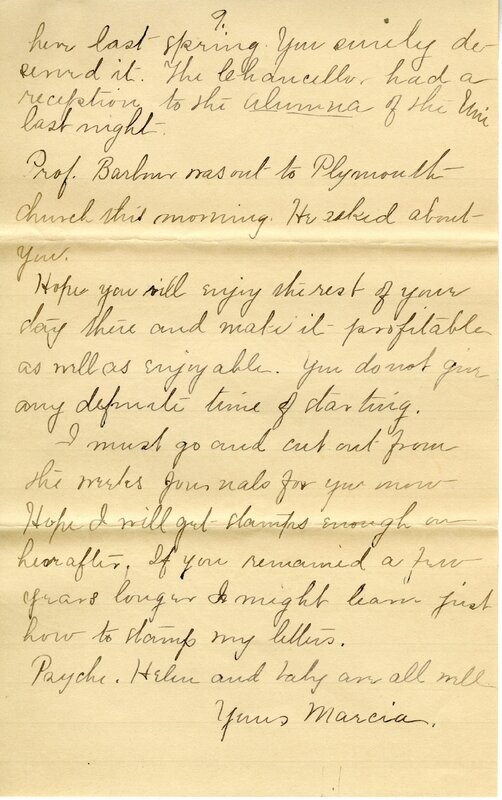 9.
here last spring. You surely de-
served it. The Chancellor had a
reception to the alumna of the Uni
last night.
Prof. Barbour was out to Plymouth
church this morning. He asked about
you.
Hope you will enjoy the rest of your
day there and make it profitable
as well as enjoyable. You do not give
any definite time of starting.
I must go and cut out from
the weeks journals for you now
Hope I will get stamps enough on
hereafter. If you remained a few
years longer I might learn just
how to stamp my letters.
Psyche. Helen and baby are all well
Yours Marcia.